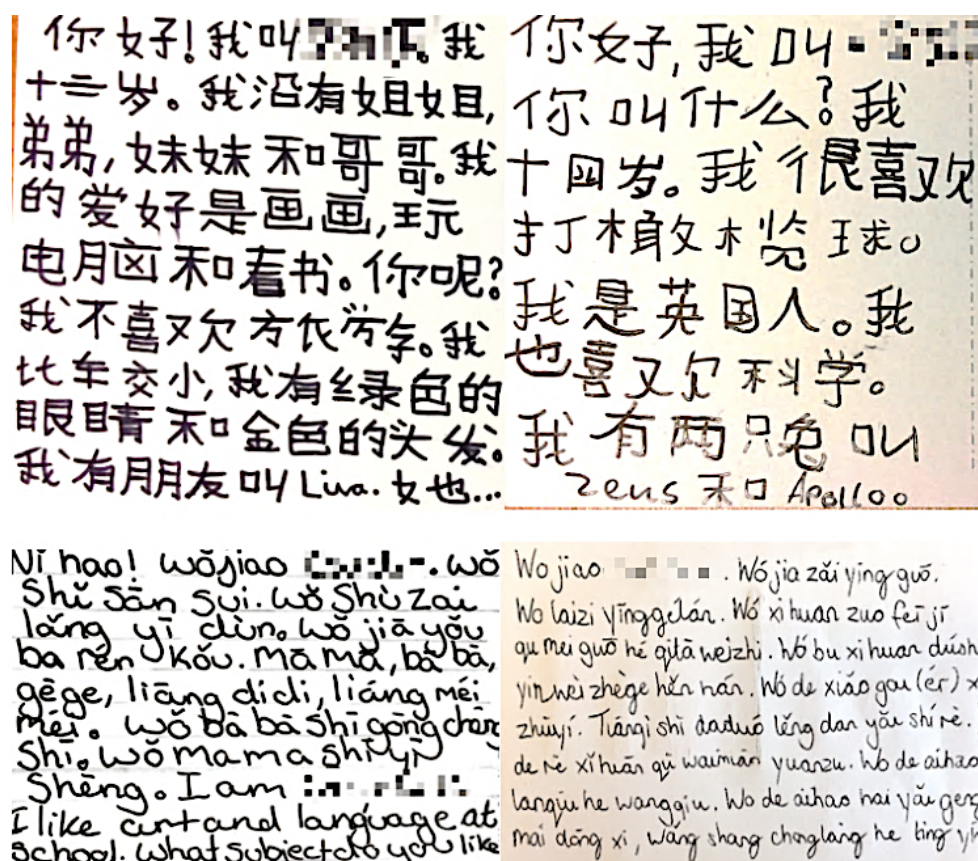 你好!我叫。我
十三岁。我没有姐姐,
弟弟,妹妹和哥哥。我
的爱好是画画,玩
电脑和看书。你呢?
我不喜欢。我
比较小,我有绿色的
眼睛和金色的头发。
我有朋友叫 她也...
你好,我叫
你叫什么?我
十四岁。我很喜欢
打橄榄球。
我是英国人。我
也喜欢科学。
我有两只兔叫
Zeus 和 Apollo。
Ni hao! wǒjiao . wǒ
Shǐ Sān Sui. wǒ Shù Zai
lǎng yī dùn。 wǒ jiā yǒu
ba rén kǒu. mā mǎ, bà bà,
gēge, liāng dìdi, liáng méi
méi。 wǒ bà bà shī gōng chéng
Shī。 wǒ mama shī yī
Shēng。 I am
I like art and language at
school. What subject do you like
Wo jiao . Wó jia zǎi yīng guó.
Wo laizi yīnggélán. Wó xì huan zuo feī jī
qu mei guō hé qìtā weìzhì. Wó bu xi huan dúsh
yīn wei zhège hěn nán. Wó de xiǎo gou (ér) x
zhùyí. Tiānqì shì daduó lěng dan yǎu shí rè.
de rè xǐ huān qù waimiàn yuanzu. Wo de aihao
lanqiu he wangqiu. Wo de aihao hai yǎu geng
mai dōng xi, wǎng shang chonglang he ting yi